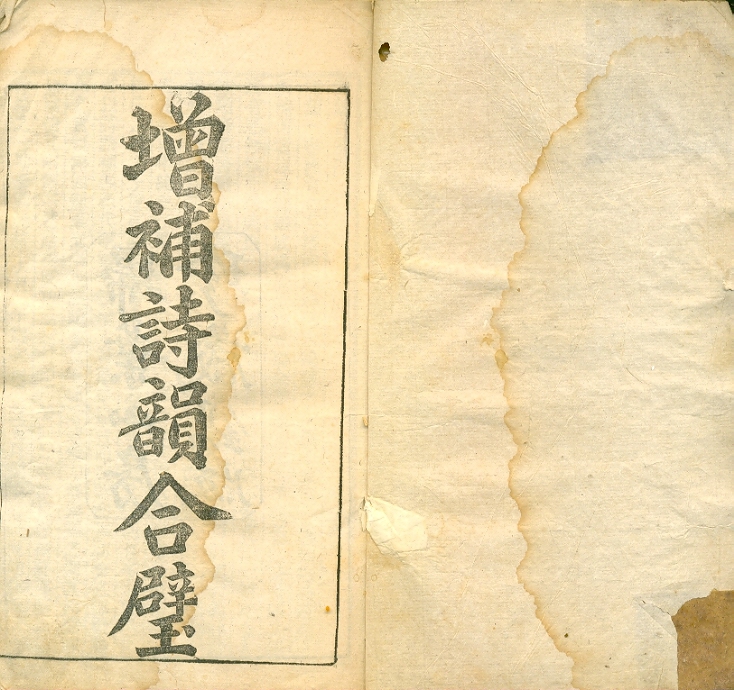 增補詩韻合璧